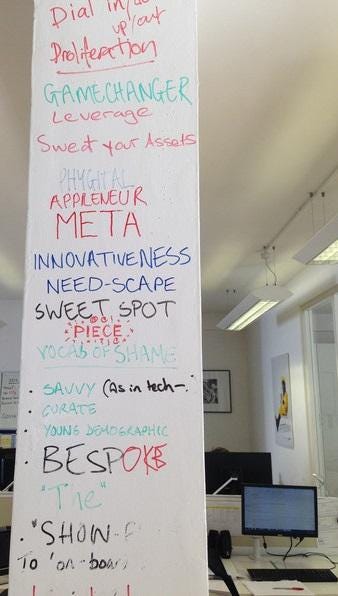 Dial in/
up/out
Proliferation
GAMECHANGER
Leverage
Sweat your Assets
PHYGITAL
APPRENEUR
META
INNOVATIVENESS
NEED-SCAPE
SWEET SPOT
PIECE
VOCAB OF SHAME
• SAVVY (As in tech-.
• CURATE
• YOUNG DEMOGRAPHIC
• BESPOKE
"The"
• "SHOW-
To 'on-boar